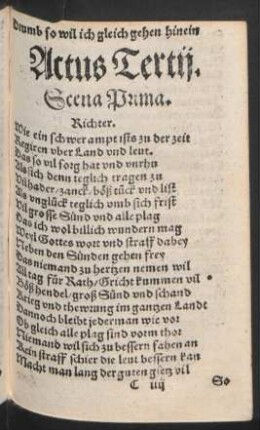 Drumb so wil ich gleich gehen hinein
Actus Tertij.
Scena Prima.
Richter.
Wie ein schwer ampt ists zu der zeit
Regiren vber Land vnd leut.
Das so vil sorg hat vnd vnrhu
Als sich denn teglich tragen zu
Vil hader/ zanck/ böß tück vnd list
Als vnglück teglich vmb sich frist
Vil grosse Sünd vnd alle plag
Das ich wol billich wundern mag
Weyl Gottes wort vnd straff dabey
Neben den Sünden gehen frey
Das niemand zu hertzen nemen wil
All tag für Rath/ Gricht kummen vil
Böß hendel/ groß Sünd vnd schand
Krieg vnd thewrung im gantzen Landt
Dannoch bleibt jederman wie vor
Ob gleich alle plag sind vorm thor
Niemand wil sich zu bessern fahen an
Kein straff schier die leut bessern kan
Macht man lang der guten gsetz vil
C iiij So